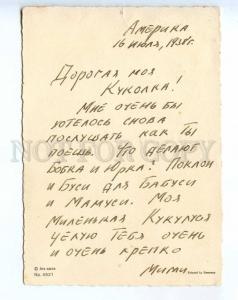 Америка
16 июля, 1938г.
Дорогая моя
Куколка!
Мне очень бы
хотелось снова
послушать как ты
поёшь. Что делают
Бобка и Юрка? Поклон
и Буси для Бабуси
и Мамуси. Моя
миленькая Кукулуся
целую тебя очень
и очень крепко
Мими
No. 6521
Printed in Germany